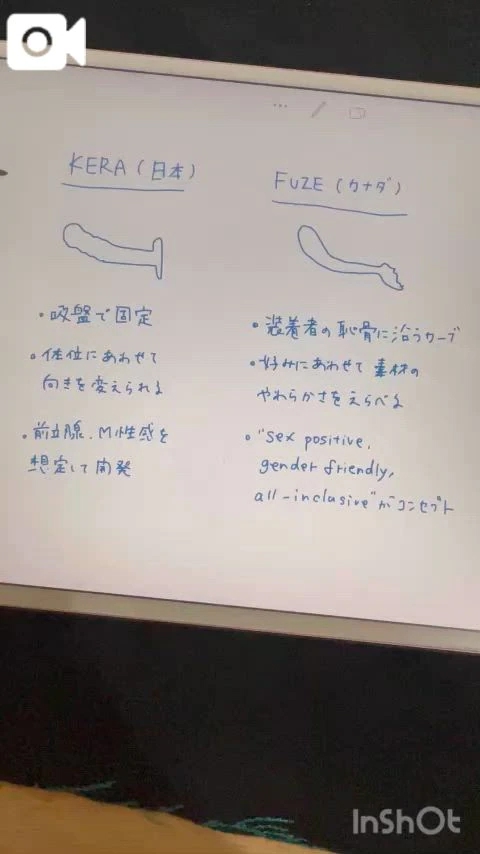 KERA (日本)
・吸盤で固定
・体位にあわせて
向きを変えられる
・前立腺、M性感を
想定して開発
FUZE (カナダ)
・装着者の恥骨に沿うカーブ
・好みにあわせて素材の
やわらかさをえらべる
・"sex positive,
gender friendly,
all-inclusive"がコンセプト
InShOt